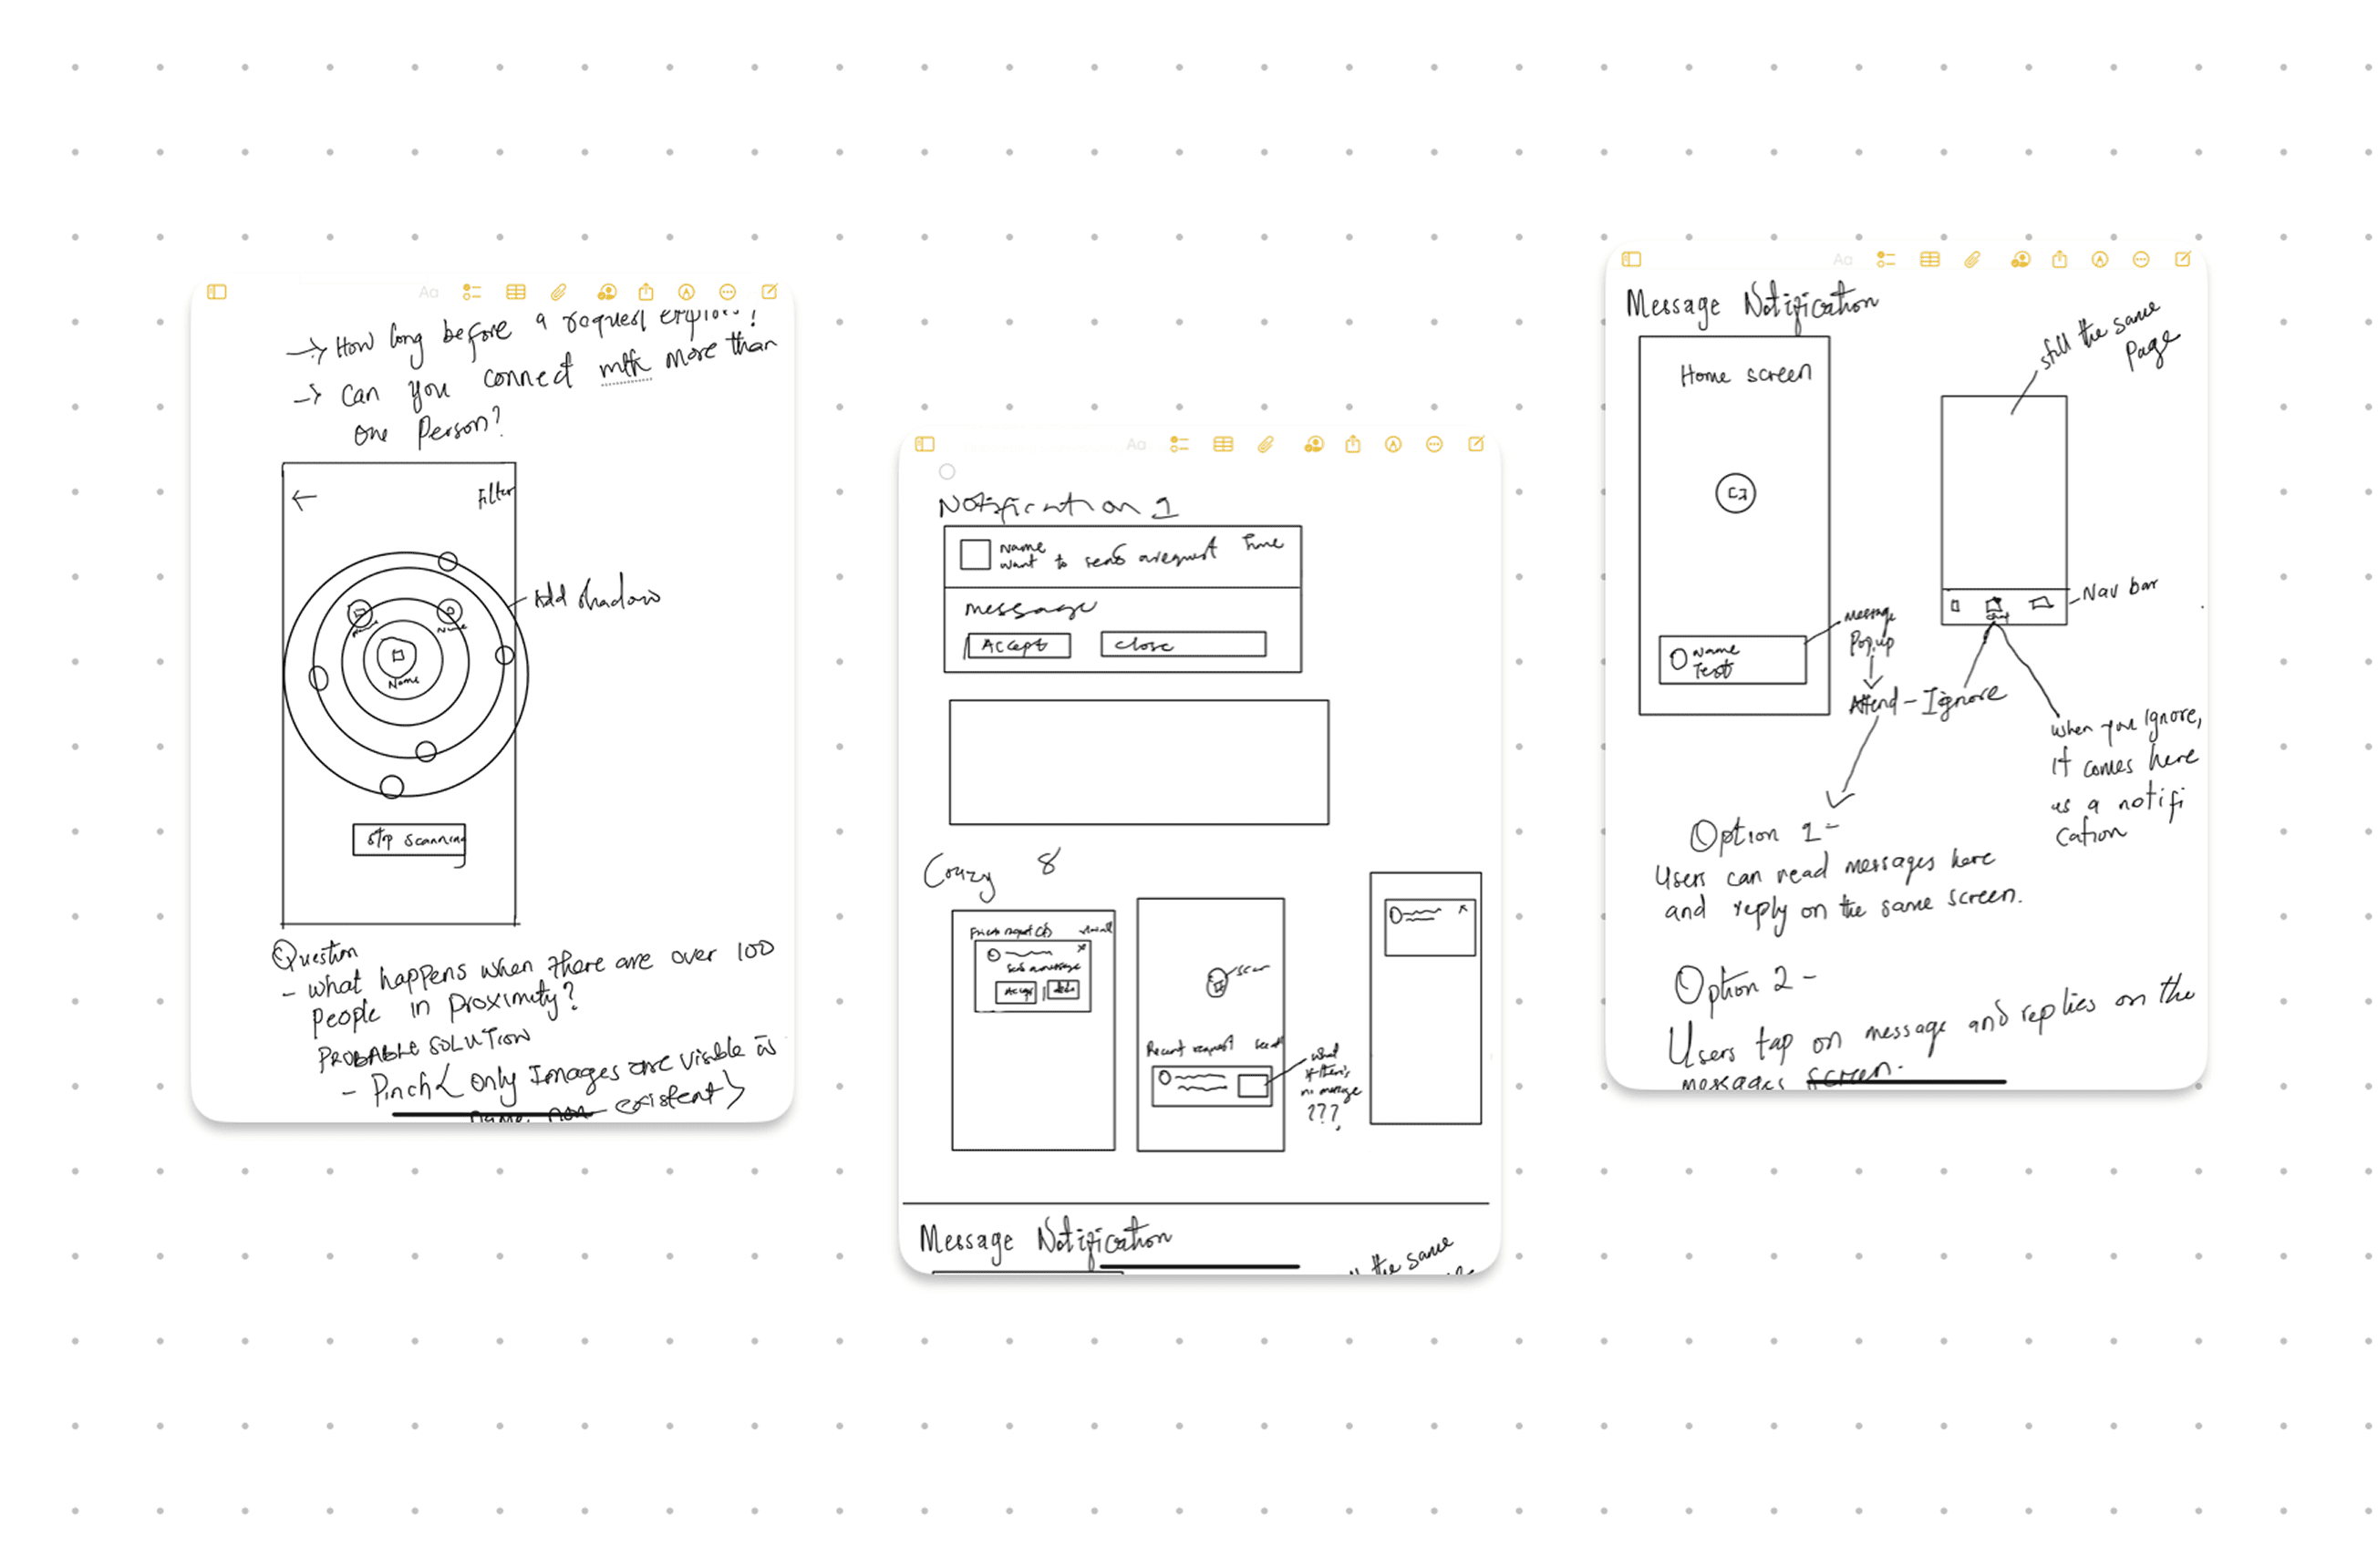 Aa
→ How long before a request
→ Can you connect mtk more than
one Person?
Filter
Add shadow
Name
Name
Name
Stop scanning
Question
- what happens when there are over 100
people in Proximity?
PROBABLE SOLUTION
- Pinch < only Images are visible as
name non existent >
Aa
Notification 1
Name
want to send a request Time
message
Accept
close
Crazy 8
Accept
scan
Recent request
what
if there's
no message
???
Message Notification
the same
Aa
Message Notification
Home screen
still the same
Page
Name
Text
message
Popup
Nav bar
Attend - Ignore
when you Ignore,
it comes here
as a notifi
cation
Option 1 -
Users can read messages here
and reply on the same screen.
Option 2 -
Users tap on message and replies on the
messages screen.